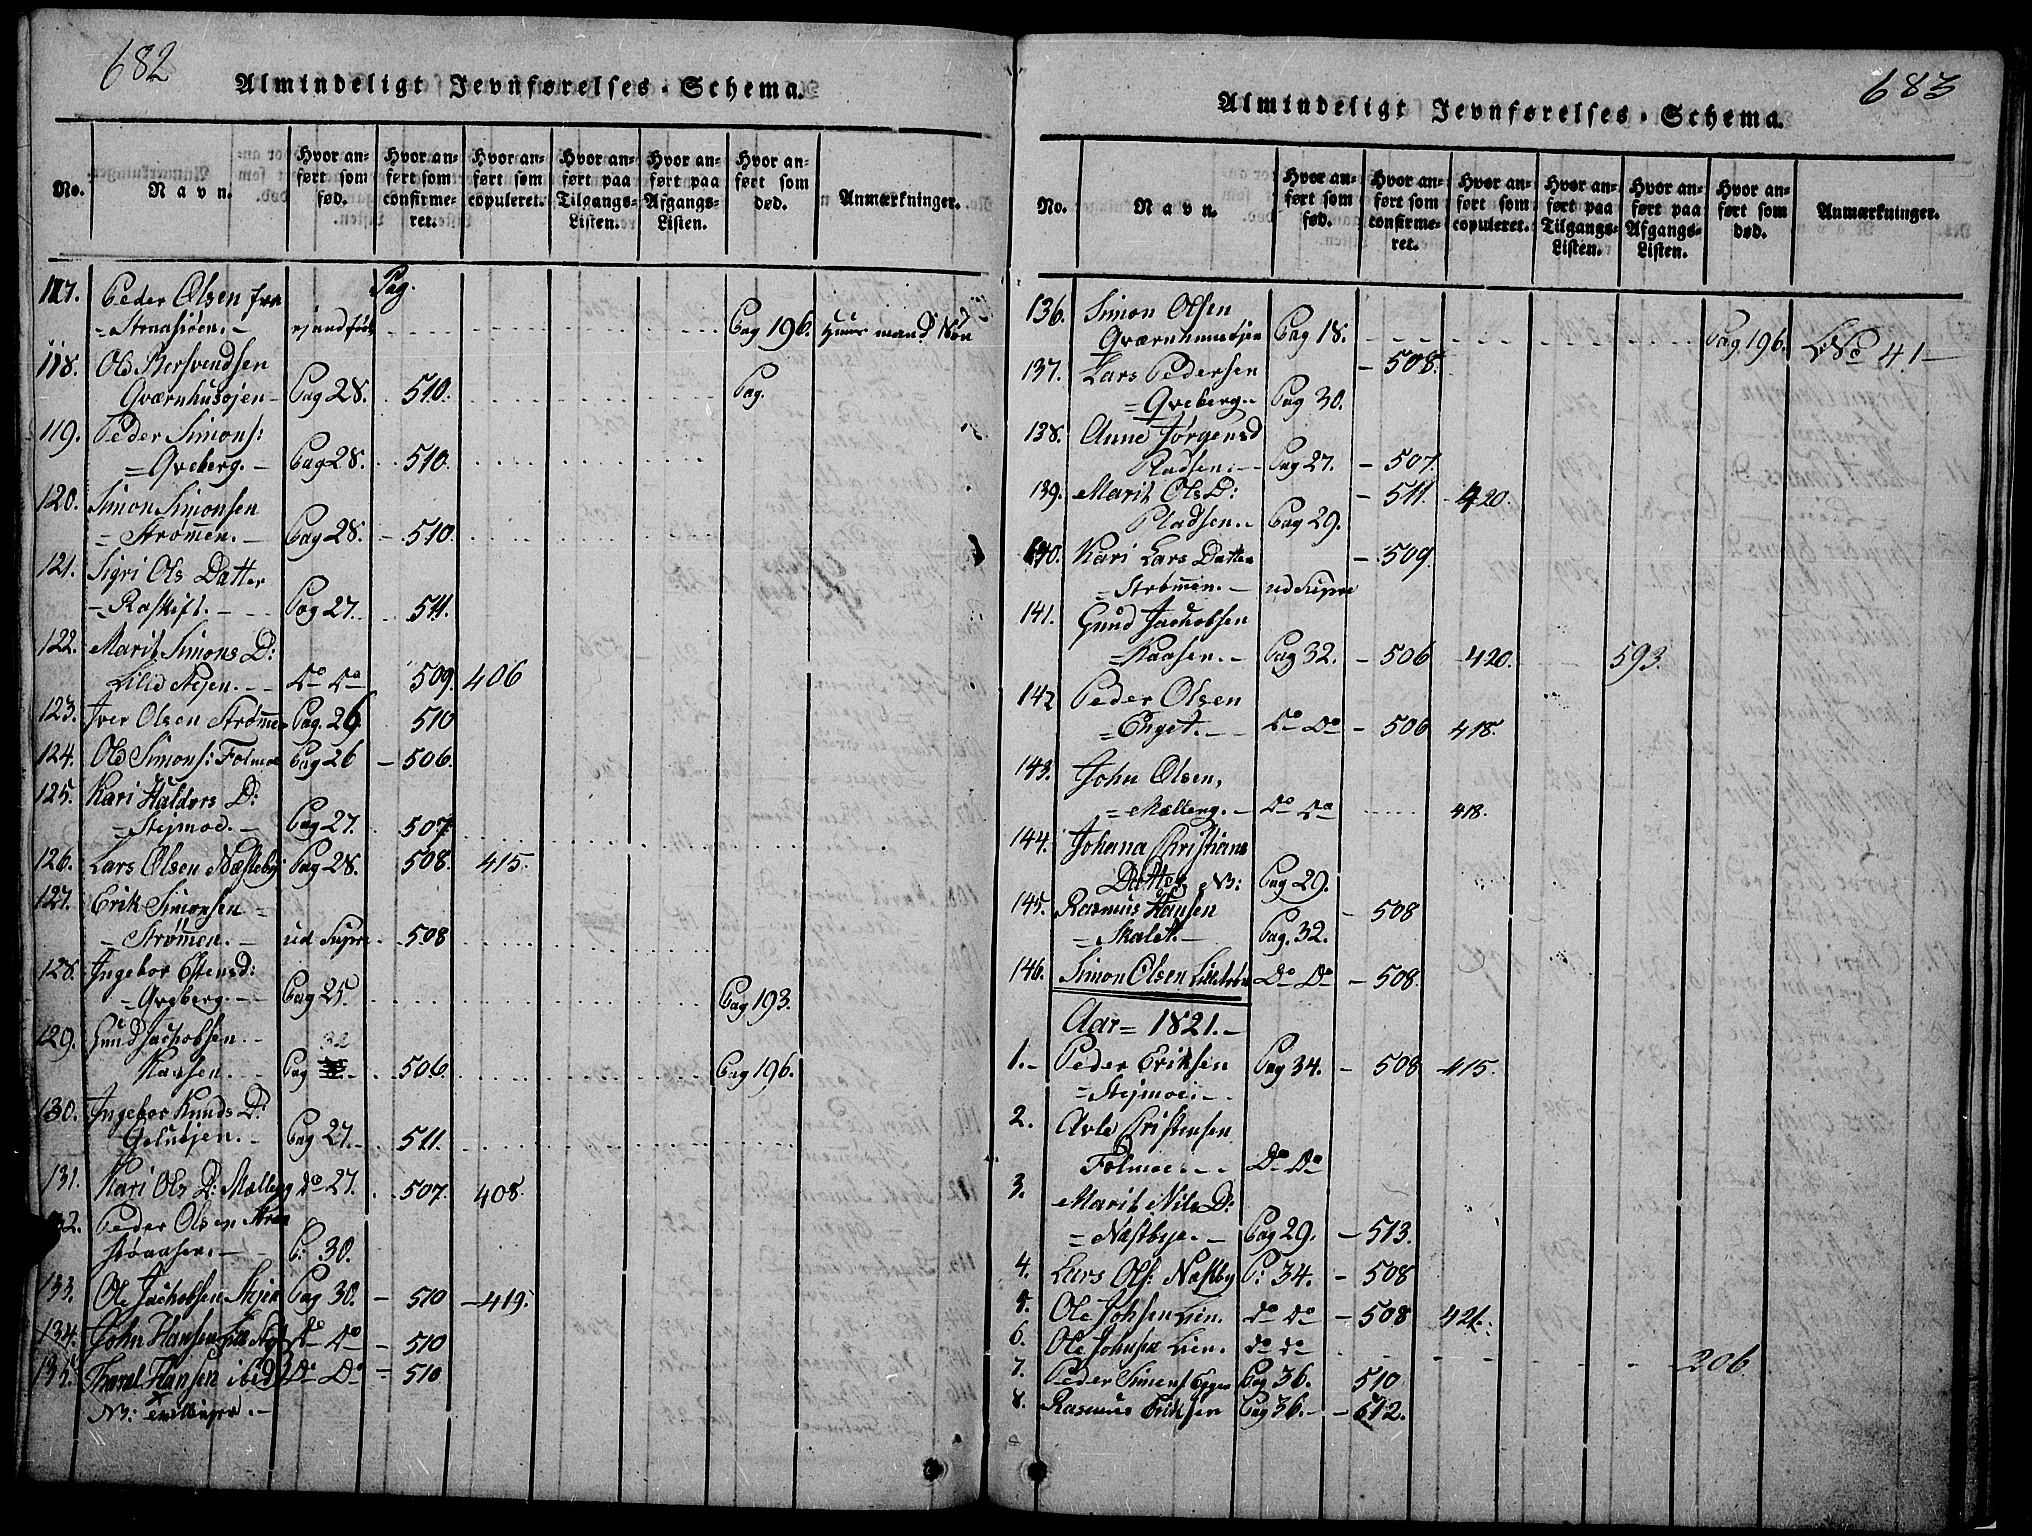 682
Almindeligt Jevnførelses-Schema.
No. Navn. Hvor anført som fød. Hvor anført som confirmeret. Hvor anført som copuleret. Hvor anført paa Tilgangs-Listen. Hvor anført paa Afgangs-Listen. Hvor anført som død. Anmærkninger.
117. Peder Olsen fra Pag.
Pag 196. Huusmand
118. Ole
Pag 28. 510. Pag.
119. Peder Simons:
= Qveberg. - Pag 28. 510.
120. Simon Simonsen
= Strømen. - Pag 28. - 510.
121. Sigri Ols Datter
Pag 27. 511.
122. Marit Simons D:
Do Do 509. 406
123. Iver Olsen Strømen Pag. 26 510
124. Ole Simons: Folmoe Pag 26 - 506.
125. Kari Haldors D:
= Stejmoe. - Pag 27. 507.
126. Lars Olsen Næsteby Pag 28. 508. 415.
127. Erik Simonsen
- Strømen. - ud Supra 508
128. Ingebor Estensd:
= Qveberg. - Pag 25. Pag 193.
129. Gund Jachobsen. - 32
Kaasen. Pag 506. Pag 196.
130. Ingebor Knuds D:
Pag 27. 511.
131. Kari Ols D: Mælleng do 27. 507. 408.
132. Peder Olsen
P: 30.
133. Ole Jachobsen Pag 30. - 510 - 419.
134. John Hansen Do Do - 510
135. Hansen ibid Do Do = 510
NB: tvillinger. -
683
Almindeligt Jevnførelses-Schema.
No. Navn. Hvor anført som fød. Hvor anført som confirmeret. Hvor anført som copuleret. Hvor anført paa Tilgangs-Listen. Hvor anført paa Afgangs-Listen. Hvor anført som død. Anmærkninger.
136. Simon Olsen
Pag 18. Pag. 196. No 41 -
137. Lars Pedersen - 508.
= Qveberg. - Pag 30.
138. Anne Jørgensd
Pladsen. - Pag 27. - 507.
139. Marit Ols D: - 511. - 420.
Pladsen. - Pag 29.
140. Kari Lars Datter - 509.
= Strømen. - ud Supra
141. Gund Jachobsen
= Kaasen. - Pag 32. - 506 - 420. 593
142 Peder Olsen
= Enget. - Do Do - 506 418.
143. John Olsen,
= Mælleng. - Do Do 418.
144. Johana Christians
Datter NB: Pag 29.
145. Rasmus Hansen - 508
= Skalet. - Pag. 32.
146. Simon Olsen Do Do - 508.
Aar = 1821. -
1. - Peder Eriksen Pag 34. - 508 - 415.
= Stejmoe. -
2. Christensen
Folmoe. - Do Do
3. Marit Nils D:
= Næstbye. - Pag 29. - 513.
4. Lars Ols: Næstby P: 34. - 508
5. Ole Johsen Lien. do do - 508 421.
6. Ole Johnsen Lien. do do 206
7. Peder Simens Eggen Pag 36. 510
8. Rasmus Eriksen Pag 36. - 512.